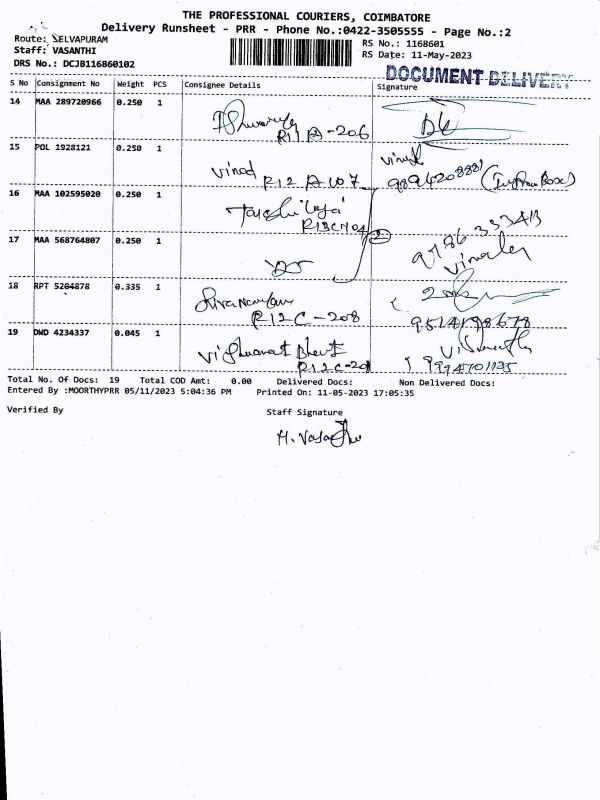 THE PROFESSIONAL COURIERS, COIMBATORE
Delivery Runsheet - PRR - Phone No.:0422-3505555 - Page No.:2
Route: SELVAPURAM
RS No.: 1168601
Staff: VASANTHI
RS Date: 11-May-2023
DRS No.: DCJB116860102
DOCUMENT DELIVERY
S No Consignment No Weight PCS Consignee Details Signature
14 MAA 289720966 0.250 1
R11 A-206
15 POL 1928121 0.250 1
Vinod R12 A 107
9894208881
16 MAA 102595020 0.250 1
17 MAA 568764807 0.250 1
18 RPT 5204878 0.335 1
R12C-208
9514198678
19 DWD 4234337 0.045 1
R12C-201
9994701125
Total No. Of Docs: 19 Total COD Amt: 0.00 Delivered Docs: Non Delivered Docs:
Entered By :MOORTHYPRR 05/11/2023 5:04:36 PM Printed On: 11-05-2023 17:05:35
Verified By Staff Signature